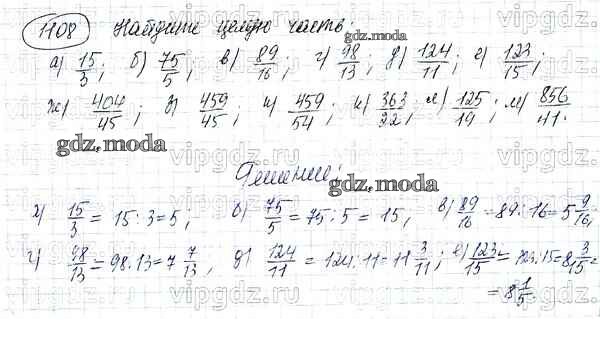 1108 Найдите целую часть:
а) 15/3; б) 75/5; в) 89/16; г) 98/13; д) 124/11; е) 123/15;
ж) 404/45; з) 459/45; и) 459/54; к) 363/22; л) 125/19; м) 856/11.
gdz.moda
gdz.moda
gdz.moda
Решение:
а) 15/3 = 15:3=5, б) 75/5 = 75:5 = 15, в) 89/16 = 89:16=5 9/16,
г) 98/13 = 98:13=7 7/13, д) 124/11 = 124:11=11 3/11; е) 123/15 = 123:15=8 3/15 =
= 8 1/5.
vipgdz.ru